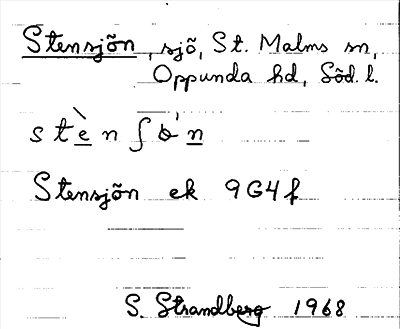 Stensjõn, sjõ, St. Malms sn,
Oppunda hd, Sõd. l.
s t è n ʃ ò n
Stensjõn ek 9G4f
S. Strandberg 1968